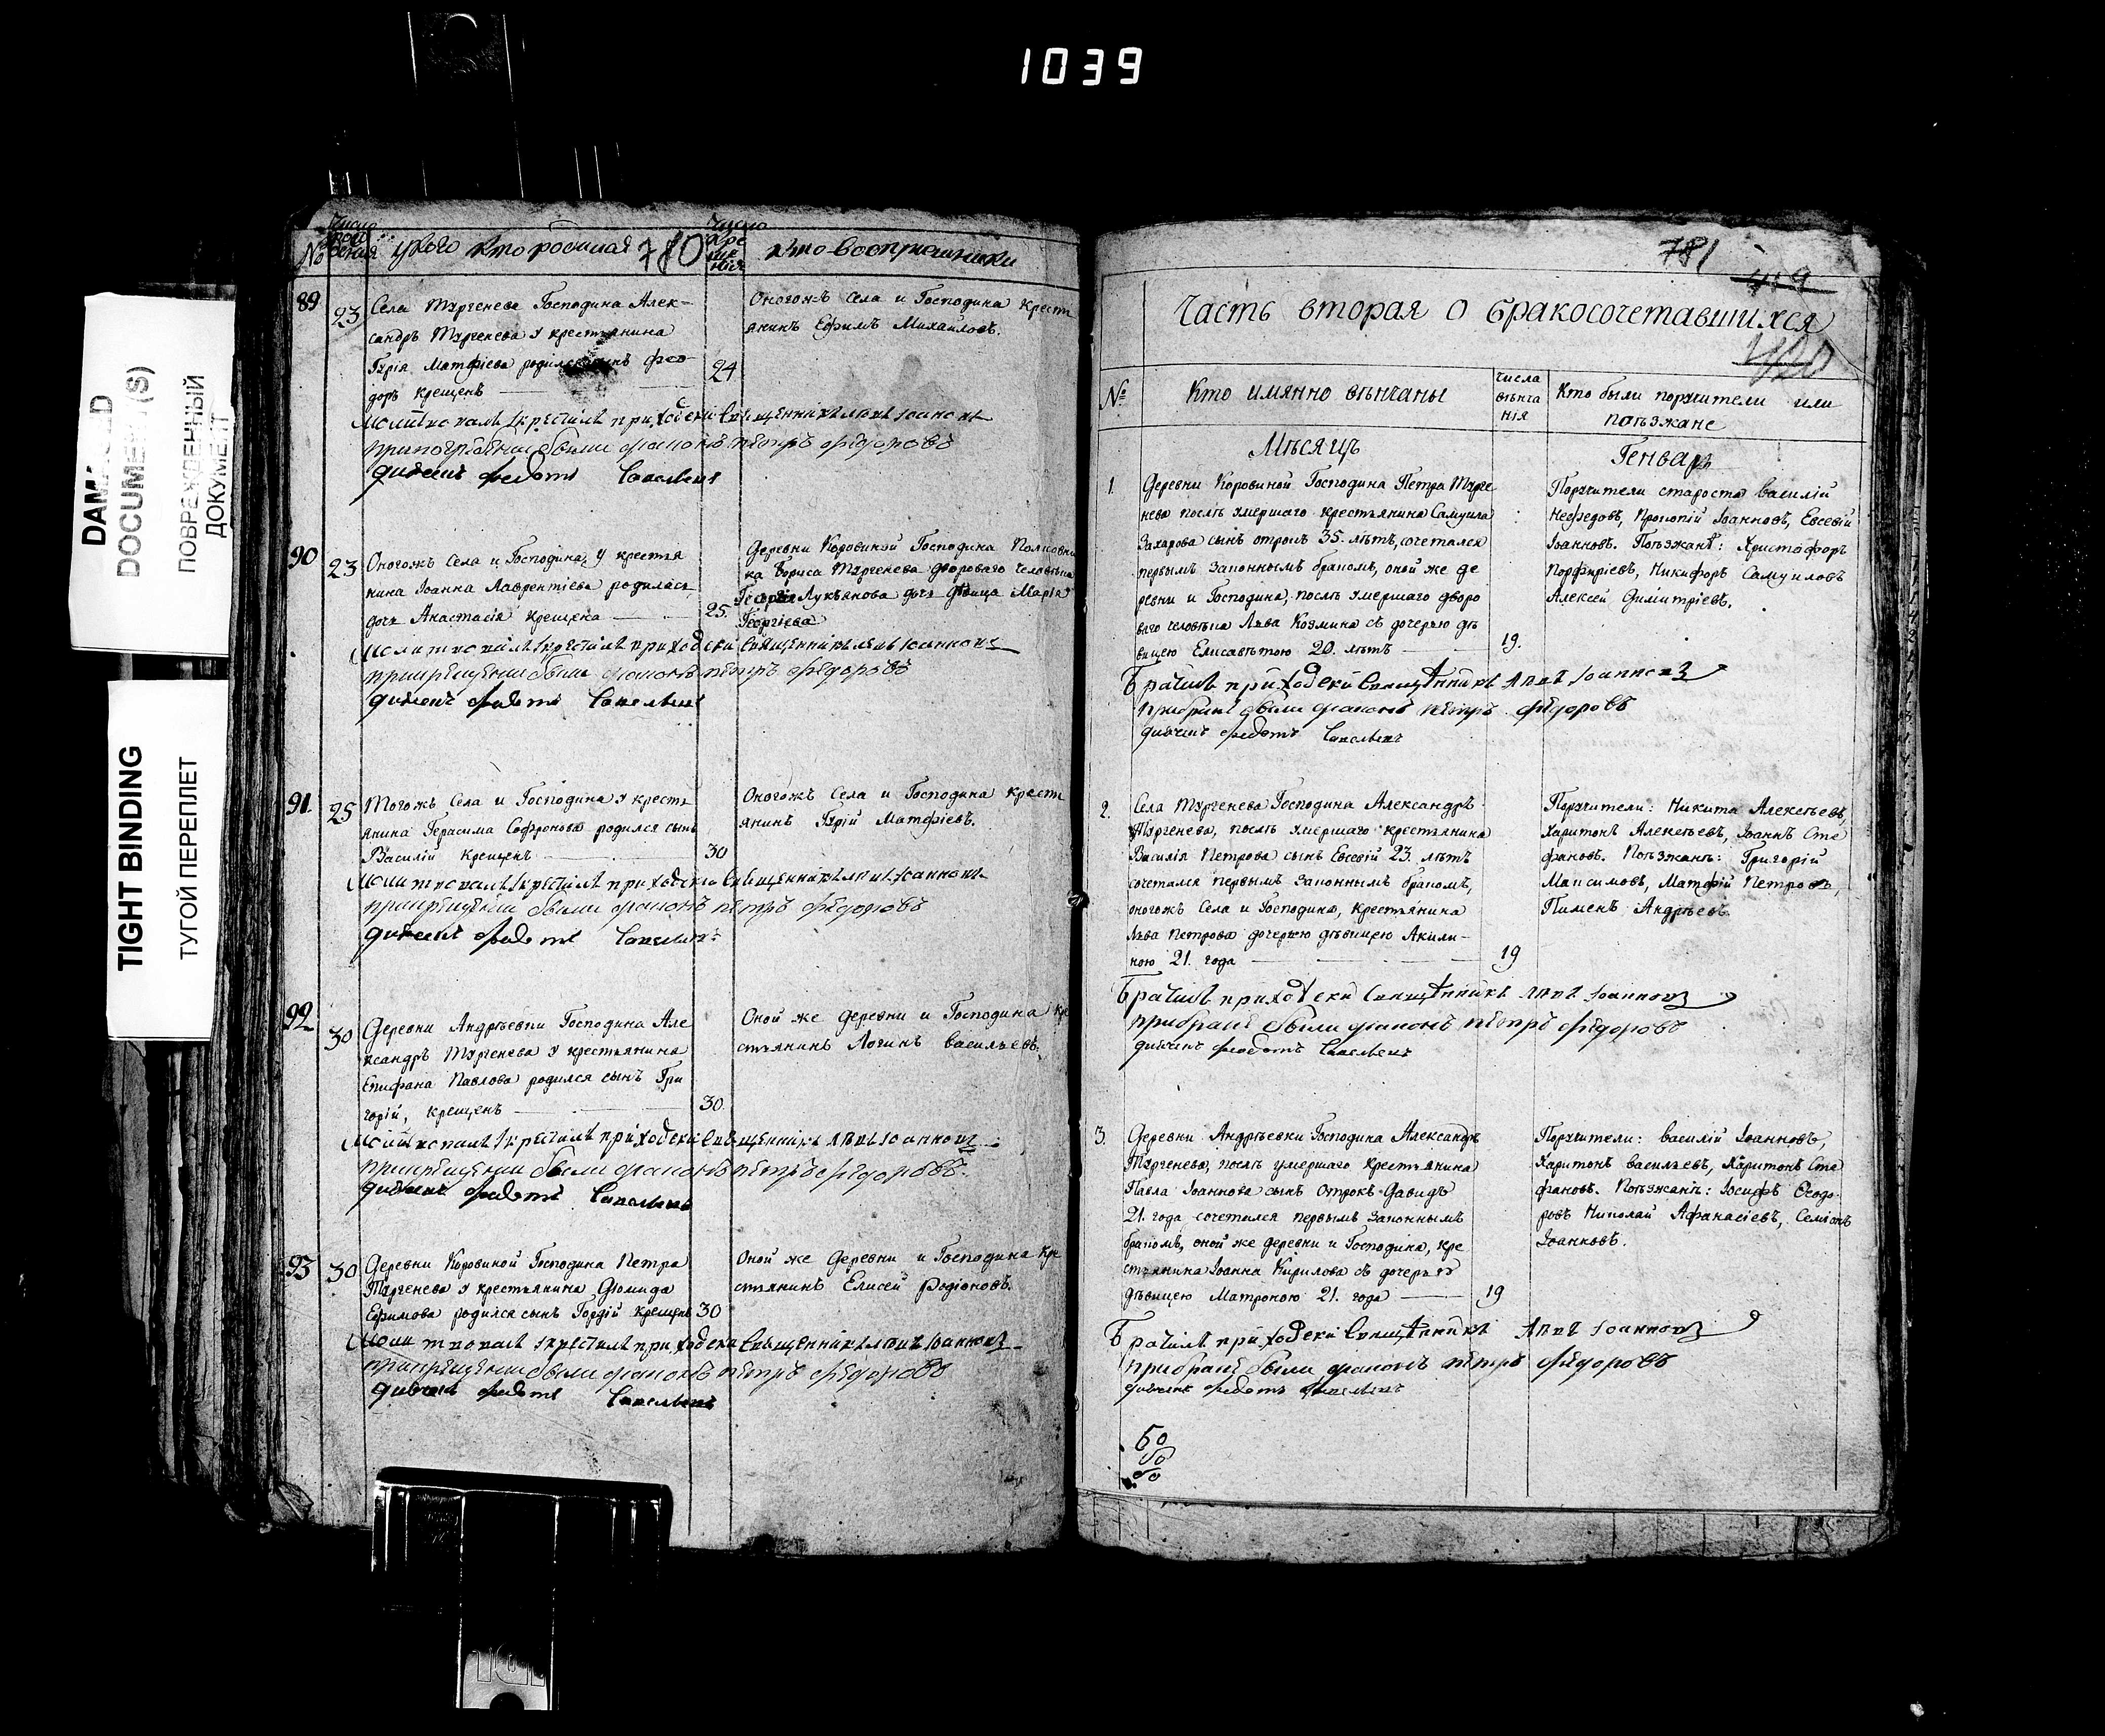 1039
DAMAGED
DOCUMENT(S)
ПОВРЕЖДЕННЫЙ
ДОКУМЕНТ
TIGHT BINDING
ТУГОЙ ПЕРЕПЛЕТ
№
Число рождения
У кого кто родился
780
Число крещения
Кто восприемники
89
23
Села Тургенева Господина Алек-
сандръ Тургенева у крестьянина
Гурія Матфіева родился сынъ Фео-
доръ крещенъ
24
Оногожъ Села и Господина крестн
янинъ Ефимъ Михайловъ.
Молитвовалъ и крестилъ приходски Священникъ Левъ Іоанновъ
при крещении были диаконъ петръ фёдоровъ
дьячекъ Федотъ Савельевъ
90
23
Оногожъ Села и Господина, у крестья
нина Іоанна Лаврентіева родилась
дочь Анастасія крещена
25.
Деревни Коровиной Господина Полковни
ка Бориса Тургенева двороваго человѣка
Георгія Лукъянова дочь дѣвица Марія
Георгіева
Молитвовалъ и крестилъ приходски Священникъ Левъ Іоанновъ
при крещении были диаконъ петръ фёдоровъ
дьячекъ Федотъ Савельевъ
91.
25
Тогожъ Села и Господина у кресть
янина Герасима Софронова родился сынъ
Василій крещенъ
30
Оногожъ Села и Господина крестн
янинъ Гурій Матфіевъ.
Молитвовалъ и крестилъ приходски Священникъ Левъ Іоанновъ
при крещении были диаконъ петръ фёдоровъ
дьячекъ Федотъ Савельевъ
92
30
Деревни Андрѣевки Господина Але
ксандръ Тургенева у крестьянина
Епифана Павлова родился сынъ Гри
горій, крещенъ
30.
Оной же деревни и Господина кре
стьянинъ Логинъ Васильевъ.
Молитвовалъ и крестилъ приходски Священникъ Левъ Іоанновъ
при крещении были диаконъ петръ фёдоровъ.
дьячекъ Федотъ Савельевъ
93
30
Деревни Коровиной Господина Петра
Тургенева у крестьянина Діомида
Ефимова родился сынъ Гордій крещенъ
30
Оной же деревни и Господина кре
стьянинъ Елисей Родіоновъ.
Молитвовалъ и крестилъ приходски Священникъ Левъ Іоанновъ
при крещении были диаконъ петръ фёдоровъ
дьячекъ Федотъ Савельевъ
781
419
Часть вторая о бракосочетавшихся
420
№
Кто имянно вѣнчаны
Числа
вѣнча
нія
Кто были поручители или
поѣзжане
Мѣсяцъ
Генварь
1.
Деревни Коровиной Господина Петра Турге
нева послѣ умершаго крестьянина Самуила
Захарова сынъ отрокъ 35. лѣтъ, сочетался
первымъ законнымъ бракомъ, оной же де
ревни и Господина, послѣ умершаго дворо
ваго человѣка Льва Козмина съ дочерью дѣ
вицею Елисавѣтою 20. лѣтъ
19.
Поручители староста Василій
Нефедовъ, Прокопій Іоанновъ, Евсевій
Іоанновъ. Поѣзжанѣ: Христофоръ
Порфиріевъ, Никифоръ Самуиловъ
Алексей Димитріевъ.
Брачилъ приходски Священникъ Левъ Іоанновъ
при бракѣ были диаконъ петръ фёдоровъ
дьячекъ Федотъ Савельевъ
2.
Села Тургенева Господина Александръ
Тургенева, послѣ умершаго крестьянина
Василія Петрова сынъ Евсевій 23. лѣтъ
сочетался первымъ законнымъ бракомъ,
оногожъ Села и Господина, крестьянина
Льва Петрова дочерью дѣвицею Акили-
ною 21. года
19
Поручители: Никита Алексѣевъ,
Харитонъ Алексѣевъ, Іоаннъ Сте
фановъ. Поѣзжанѣ: Григорій
Максимовъ, Матфій Петровъ,
Пименъ Андрѣевъ.
Брачилъ приходски Священникъ Левъ Іоанновъ
при бракѣ были диаконъ петръ фёдоровъ
дьячекъ Федотъ Савельевъ
3.
Деревни Андрѣевки Господина Александръ
Тургенева, послѣ умершаго крестьянина
Павла Іоаннова сынъ отрокъ Давидъ
21. года сочетался первымъ законнымъ
бракомъ, оной же деревни и Господина, кре
стьянина Іоанна Кирилова съ дочерью
дѣвицею Матроною 21. года
19
Поручители: Василій Іоанновъ,
Харитонъ Васильевъ, Харитонъ Сте
фановъ. Поѣзжанѣ: Іосифъ Ѳеодо-
ровъ Николай Афанасіевъ, Семіонъ
Іоанновъ.
Брачилъ приходски Священникъ Левъ Іоанновъ
при бракѣ были диаконъ петръ фёдоровъ
дьячекъ Федотъ Савельевъ